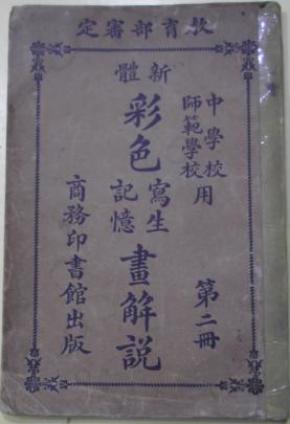 教育部審定
中學校
師範學校
用
第二冊
新體
彩色
寫生
記憶
畫解說
商務印書館出版